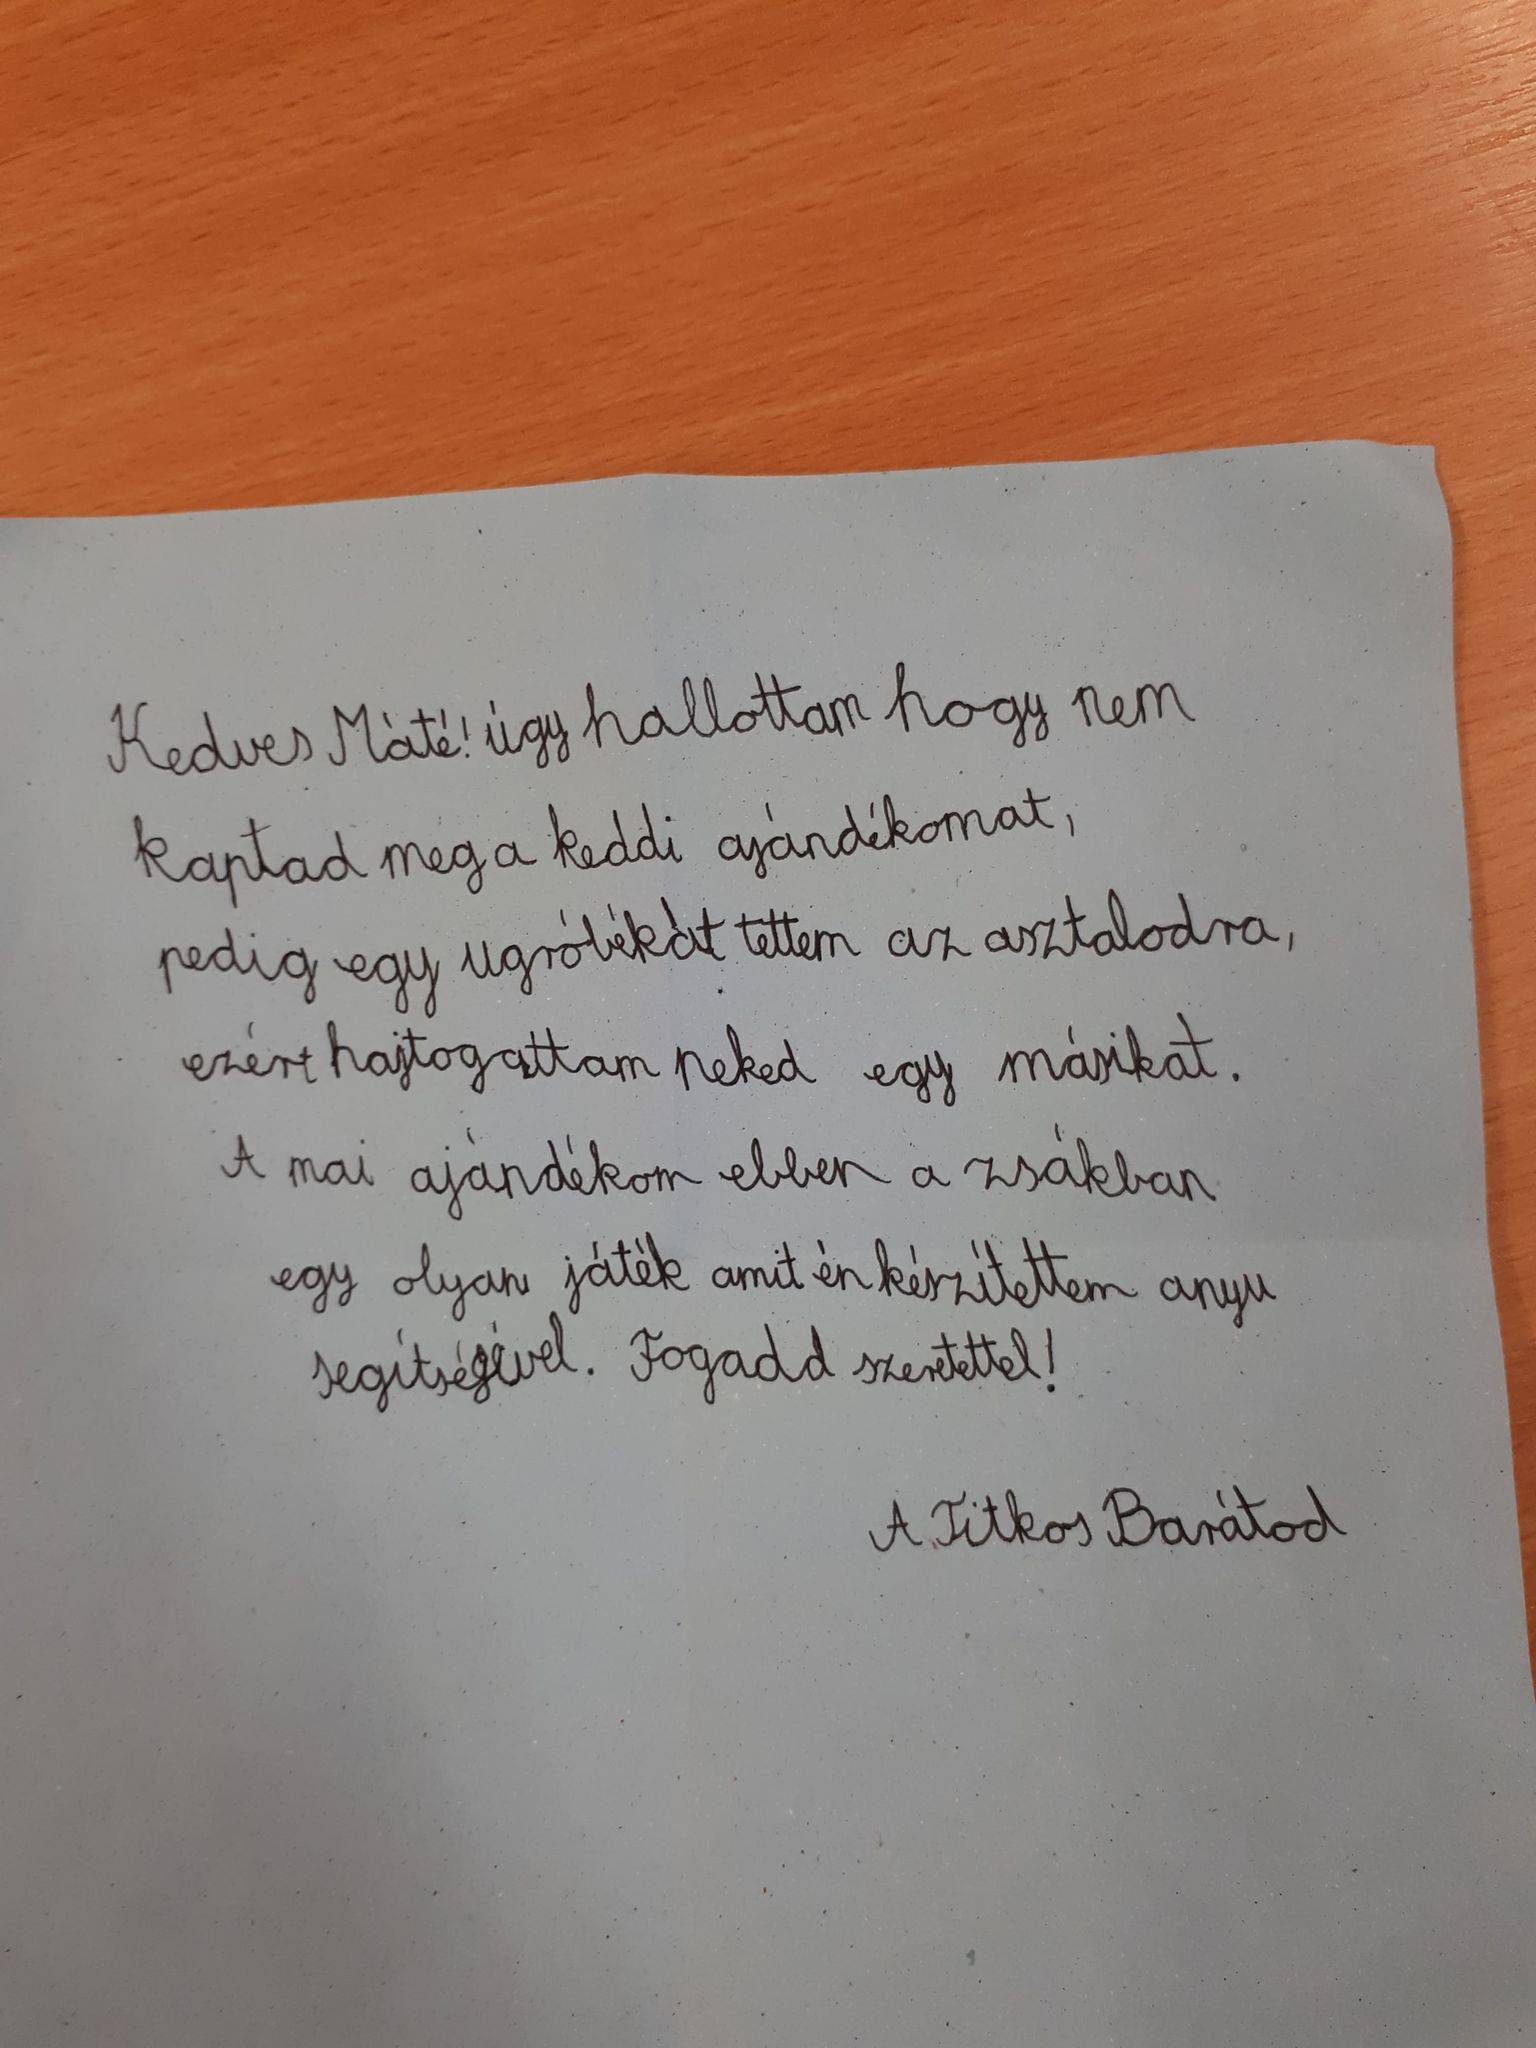 Kedves Máté! úgy hallottam hogy nem
kaptad meg a keddi ajándékomat,
pedig egy ugróbékát tettem az asztalodra,
ezért hajtogattam neked egy másikat.
A mai ajándékom ebben a zsákban
egy olyan játék amit én készítettem anyu
segítségével. Fogadd szeretettel!
A Titkos Barátod